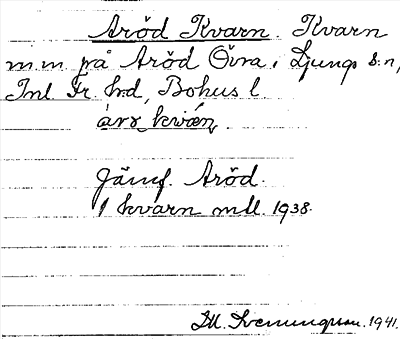 Aröd Kvarn. Kvarn
m.m. på Aröd Övra i Ljungs s:n,
Inl. Fr. h:d, Bohus l
àrö kvæ̀ɳ.
Jämf. Aröd.
1 kvarn mll. 1938.
Sveningsson. 1941.